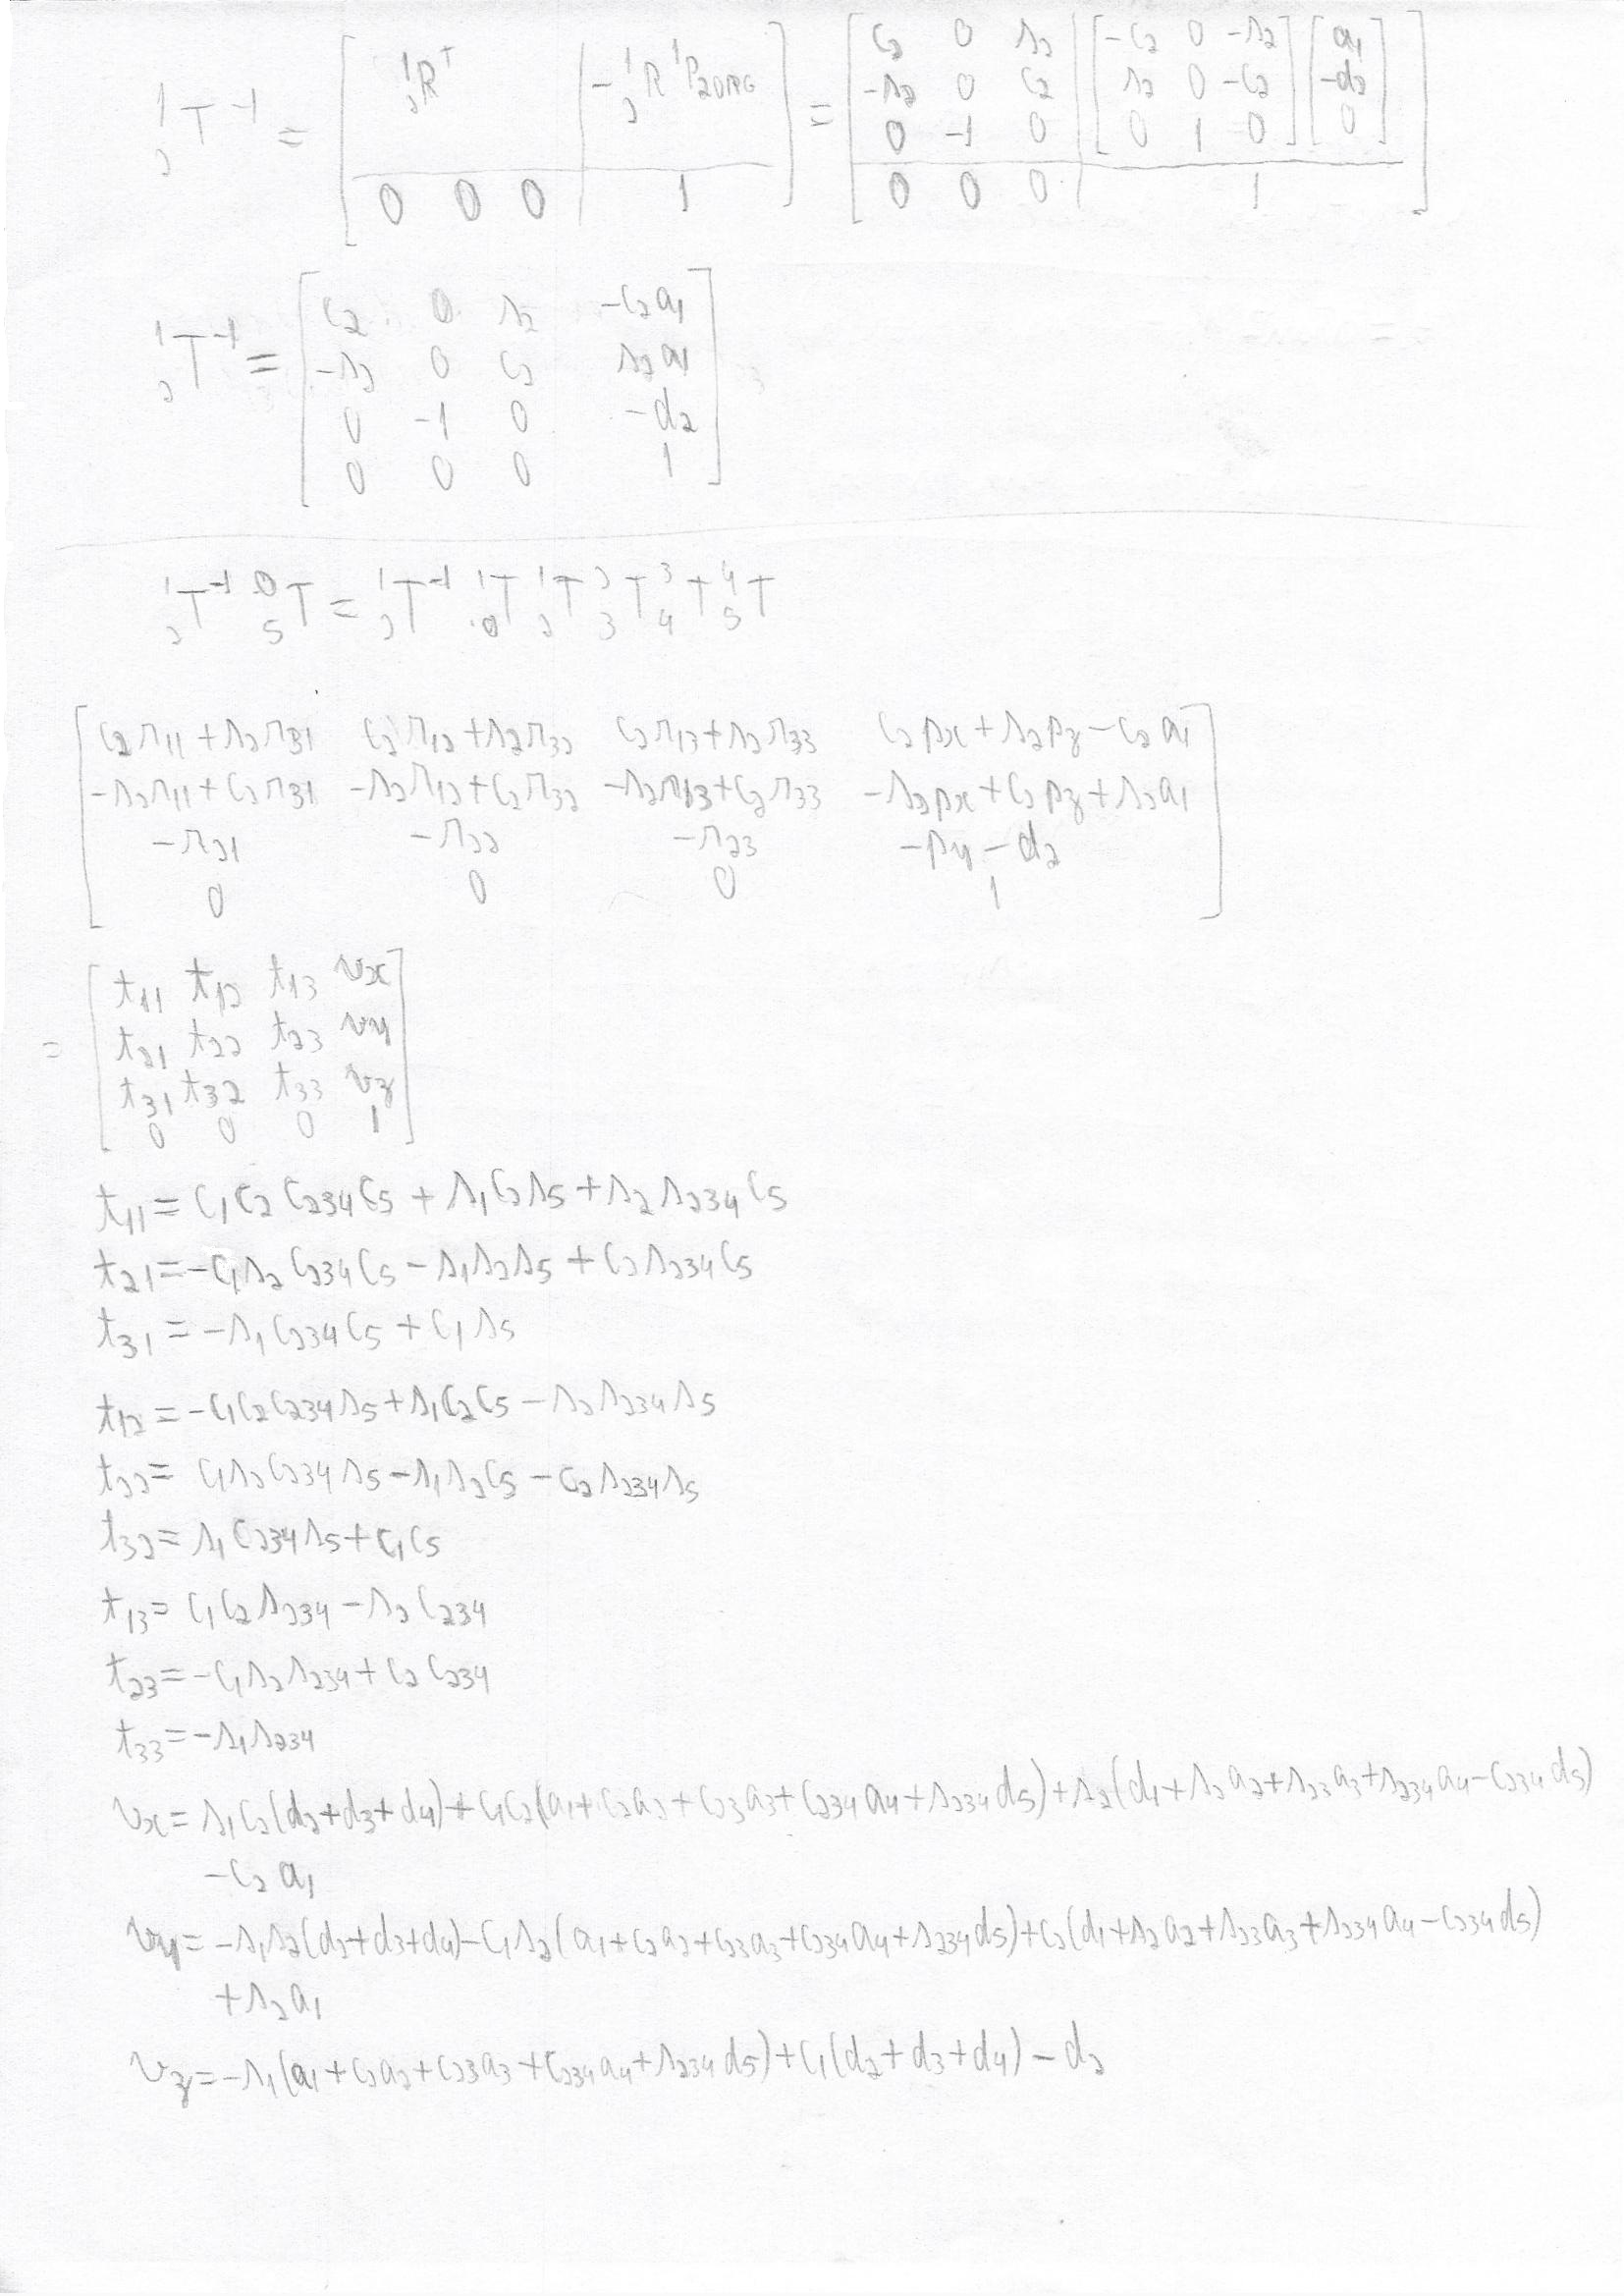 ¹₂T⁻¹ = [ ¹₂Rᵀ | -¹₂R ¹P₂ORG ; 0 0 0 | 1 ] = [ c₂ 0 s₂ ; -s₂ 0 c₂ ; 0 -1 0 | [ -c₂ 0 -s₂ ; s₂ 0 -c₂ ; 0 1 0 ] [ a₁ ; -d₂ ; 0 ] ; 0 0 0 | 1 ]
¹₂T⁻¹ = [ c₂ 0 s₂ -c₂a₁
-s₂ 0 c₂ s₂a₁
0 -1 0 -d₂
0 0 0 1 ]
¹₂T⁻¹ ⁰₅T = ¹₂T⁻¹ ¹₀T ¹₂T ²₃T ³₄T ⁴₅T
[ c₂r₁₁+s₂r₃₁ c₂r₁₂+s₂r₃₂ c₂r₁₃+s₂r₃₃ c₂px+s₂pz-c₂a₁
-s₂r₁₁+c₂r₃₁ -s₂r₁₂+c₂r₃₂ -s₂r₁₃+c₂r₃₃ -s₂px+c₂pz+s₂a₁
-r₂₁ -r₂₂ -r₂₃ -py-d₂
0 0 0 1 ]
= [ t₁₁ t₁₂ t₁₃ vx
t₂₁ t₂₂ t₂₃ vy
t₃₁ t₃₂ t₃₃ vz
0 0 0 1 ]
t₁₁ = c₁c₂c₂₃₄c₅ + s₁c₂s₅ + s₂s₂₃₄c₅
t₂₁ = -c₁s₂c₂₃₄c₅ - s₁s₂s₅ + c₂s₂₃₄c₅
t₃₁ = -s₁c₂₃₄c₅ + c₁s₅
t₁₂ = -c₁c₂c₂₃₄s₅ + s₁c₂c₅ - s₂s₂₃₄s₅
t₂₂ = c₁s₂c₂₃₄s₅ - s₁s₂c₅ - c₂s₂₃₄s₅
t₃₂ = s₁c₂₃₄s₅ + c₁c₅
t₁₃ = c₁c₂s₂₃₄ - s₂c₂₃₄
t₂₃ = -c₁s₂s₂₃₄ + c₂c₂₃₄
t₃₃ = -s₁s₂₃₄
vx = s₁c₂(d₂+d₃+d₄) + c₁c₂(a₁+c₂a₂+c₂₃a₃+c₂₃₄a₄+s₂₃₄d₅) + s₂(d₁+s₂a₂+s₂₃a₃+s₂₃₄a₄-c₂₃₄d₅)
-c₂a₁
vy = -s₁s₂(d₂+d₃+d₄) - c₁s₂(a₁+c₂a₂+c₂₃a₃+c₂₃₄a₄+s₂₃₄d₅) + c₂(d₁+s₂a₂+s₂₃a₃+s₂₃₄a₄-c₂₃₄d₅)
+s₂a₁
vz = -s₁(a₁+c₂a₂+c₂₃a₃+c₂₃₄a₄+s₂₃₄d₅) + c₁(d₂+d₃+d₄) - d₂